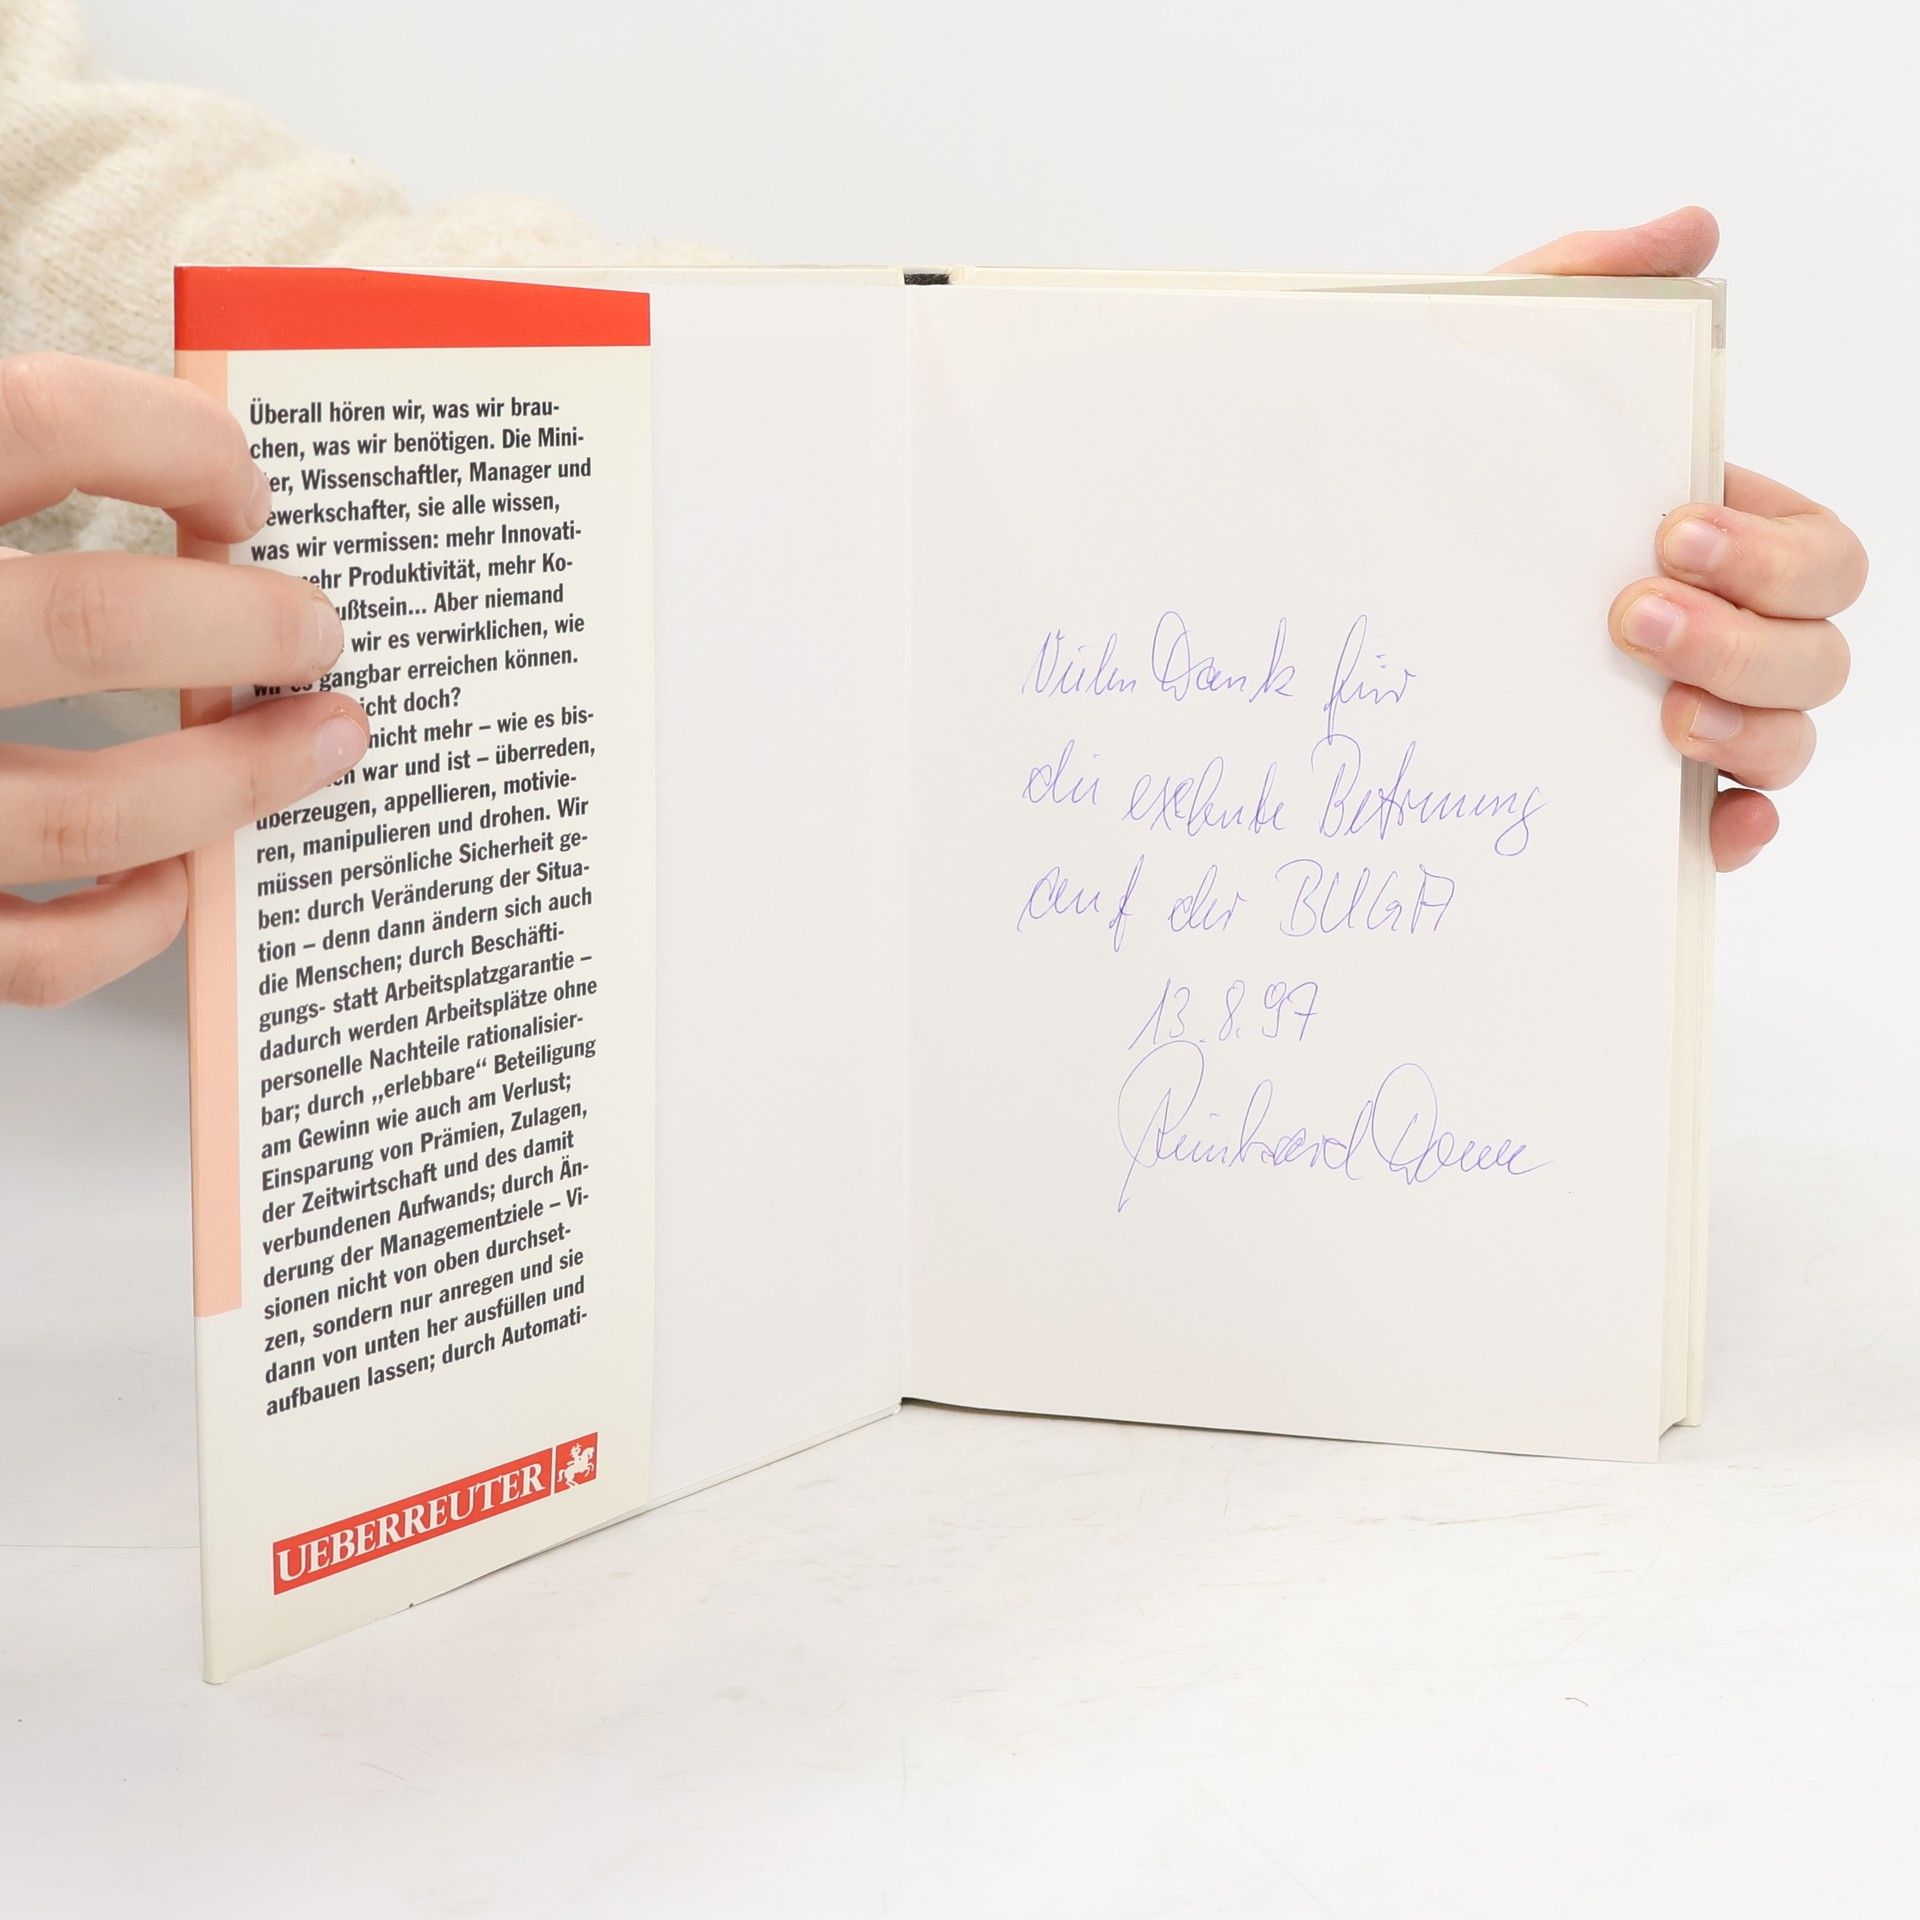 Überall hören wir, was wir brau-
chen, was wir benötigen. Die Mini-
er, Wissenschaftler, Manager und
ewerkschafter, sie alle wissen,
was wir vermissen: mehr Innovati-
ehr Produktivität, mehr Ko-
ußtsein... Aber niemand
wir es verwirklichen, wie
wir es gangbar erreichen können.
icht doch?
nicht mehr – wie es bis-
war und ist – überreden,
überzeugen, appellieren, motivie-
ren, manipulieren und drohen. Wir
müssen persönliche Sicherheit ge-
ben: durch Veränderung der Situa-
tion – denn dann ändern sich auch
die Menschen; durch Beschäfti-
gungs- statt Arbeitsplatzgarantie –
dadurch werden Arbeitsplätze ohne
personelle Nachteile rationalisier-
bar; durch „erlebbare“ Beteiligung
am Gewinn wie auch am Verlust;
Einsparung von Prämien, Zulagen,
der Zeitwirtschaft und des damit
verbundenen Aufwands; durch Än-
derung der Managementziele – Vi-
sionen nicht von oben durchset-
zen, sondern nur anregen und sie
dann von unten her ausfüllen und
aufbauen lassen; durch Automati-
UEBERREUTER
Vielen Dank für
die Betreuung
auf der BUGA
13.8.97
Reinhard